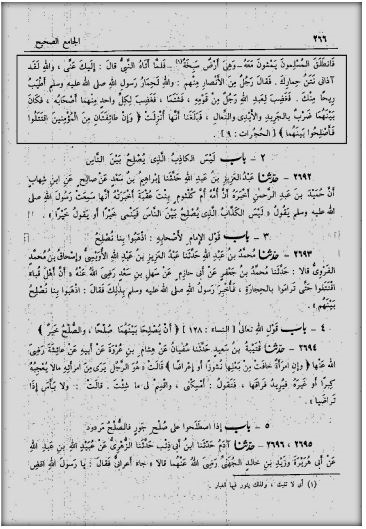 ٢٦٦ الجامع الصحيح
فَانْطَلَقَ الْمُسْلِمُونَ يَمْشُونَ مَعَهُ - وَهِيَ أَرْضٌ سَبِخَةٌ(١) - فَلَمَّا أَتَاهُ النَّبِيُّ قَالَ : إِلَيْكَ عَنِّي ، وَاللَّهِ لَقَدْ
آذَانِي نَتْنُ حِمَارِكَ . فَقَالَ رَجُلٌ مِنَ الْأَنْصَارِ مِنْهُمْ : وَاللَّهِ لَحِمَارُ رَسُولِ اللَّهِ صلى الله عليه وسلم أَطْيَبُ
رِيحًا مِنْكَ . فَغَضِبَ لِعَبْدِ اللَّهِ رَجُلٌ مِنْ قَوْمِهِ ، فَشَتَمَا ، فَغَضِبَ لِكُلِّ وَاحِدٍ مِنْهُمَا أَصْحَابُهُ ، فَكَانَ
بَيْنَهُمَا ضَرْبٌ بِالْجَرِيدِ وَالْأَيْدِي وَالنِّعَالِ ، فَبَلَغَنَا أَنَّهَا أُنْزِلَتْ ﴿ وَإِنْ طَائِفَتَانِ مِنَ الْمُؤْمِنِينَ اقْتَتَلُوا
فَأَصْلِحُوا بَيْنَهُمَا ﴾ [ الحُجُرات : ٩ ] .
٢ - باب لَيْسَ الْكَاذِبُ الَّذِي يُصْلِحُ بَيْنَ النَّاسِ
٢٦٩٢ - حدثنا عَبْدُ الْعَزِيزِ بْنُ عَبْدِ اللَّهِ حَدَّثَنَا إِبْرَاهِيمُ بْنُ سَعْدٍ عَنْ صَالِحٍ عَنِ ابْنِ شِهَابٍ
أَنَّ حُمَيْدَ بْنَ عَبْدِ الرَّحْمَنِ أَخْبَرَهُ أَنَّ أُمَّهُ أُمَّ كُلْثُومٍ بِنْتَ عُقْبَةَ أَخْبَرَتْهُ أَنَّهَا سَمِعَتْ رَسُولَ اللَّهِ صلى
الله عليه وسلم يَقُولُ « لَيْسَ الْكَذَّابُ الَّذِي يُصْلِحُ بَيْنَ النَّاسِ فَيَنْمِي خَيْرًا أَوْ يَقُولُ خَيْرًا » .
٣ - باب قَوْلِ الْإِمَامِ لِأَصْحَابِهِ : اذْهَبُوا بِنَا نُصْلِحُ
٢٦٩٣ - حدثنا مُحَمَّدُ بْنُ عَبْدِ اللَّهِ حَدَّثَنَا عَبْدُ الْعَزِيزِ بْنُ عَبْدِ اللَّهِ الْأُوَيْسِيُّ وَإِسْحَاقُ بْنُ مُحَمَّدٍ
الْفَرْوِيُّ قَالَا : حَدَّثَنَا مُحَمَّدُ بْنُ جَعْفَرٍ عَنْ أَبِي حَازِمٍ عَنْ سَهْلِ بْنِ سَعْدٍ رَضِيَ اللَّهُ عَنْهُ « أَنَّ أَهْلَ قُبَاءٍ
اقْتَتَلُوا حَتَّى تَرَامَوْا بِالْحِجَارَةِ ، فَأُخْبِرَ رَسُولُ اللَّهِ صلى الله عليه وسلم بِذَلِكَ فَقَالَ : اذْهَبُوا بِنَا نُصْلِحُ
بَيْنَهُمْ » .
٤ - باب قَوْلِ اللَّهِ تَعَالَى [ النساء : ١٢٨ ] ﴿ أَنْ يُصْلِحَا بَيْنَهُمَا صُلْحًا ، وَالصُّلْحُ خَيْرٌ ﴾
٢٦٩٤ - حدثنا قُتَيْبَةُ بْنُ سَعِيدٍ حَدَّثَنَا سُفْيَانُ عَنْ هِشَامِ بْنِ عُرْوَةَ عَنْ أَبِيهِ عَنْ عَائِشَةَ رَضِيَ
اللَّهُ عَنْهَا ﴿ وَإِنِ امْرَأَةٌ خَافَتْ مِنْ بَعْلِهَا نُشُوزًا أَوْ إِعْرَاضًا ﴾ قَالَتْ « هُوَ الرَّجُلُ يَرَى مِنَ امْرَأَتِهِ مَا لَا يُعْجِبُهُ
كِبَرًا أَوْ غَيْرَهُ فَيُرِيدُ فِرَاقَهَا ، فَتَقُولُ : أَمْسِكْنِي ، وَاقْسِمْ لِي مَا شِئْتَ . قَالَتْ : وَلَا بَأْسَ إِذَا
تَرَاضَيَا » .
٥ - باب إِذَا اصْطَلَحُوا عَلَى صُلْحِ جَوْرٍ فَالصُّلْحُ مَرْدُودٌ
٢٦٩٥ ، ٢٦٩٦ - حدثنا آدَمُ حَدَّثَنَا ابْنُ أَبِي ذِئْبٍ حَدَّثَنَا الزُّهْرِيُّ عَنْ عُبَيْدِ اللَّهِ بْنِ عَبْدِ اللَّهِ
عَنْ أَبِي هُرَيْرَةَ وَزَيْدِ بْنِ خَالِدٍ الْجُهَنِيِّ رَضِيَ اللَّهُ عَنْهُمَا قَالَا « جَاءَ أَعْرَابِيٌّ فَقَالَ : يَا رَسُولَ اللَّهِ اقْضِ
(١) أي لا تنبت ، ولذلك يثور فيها الغبار .